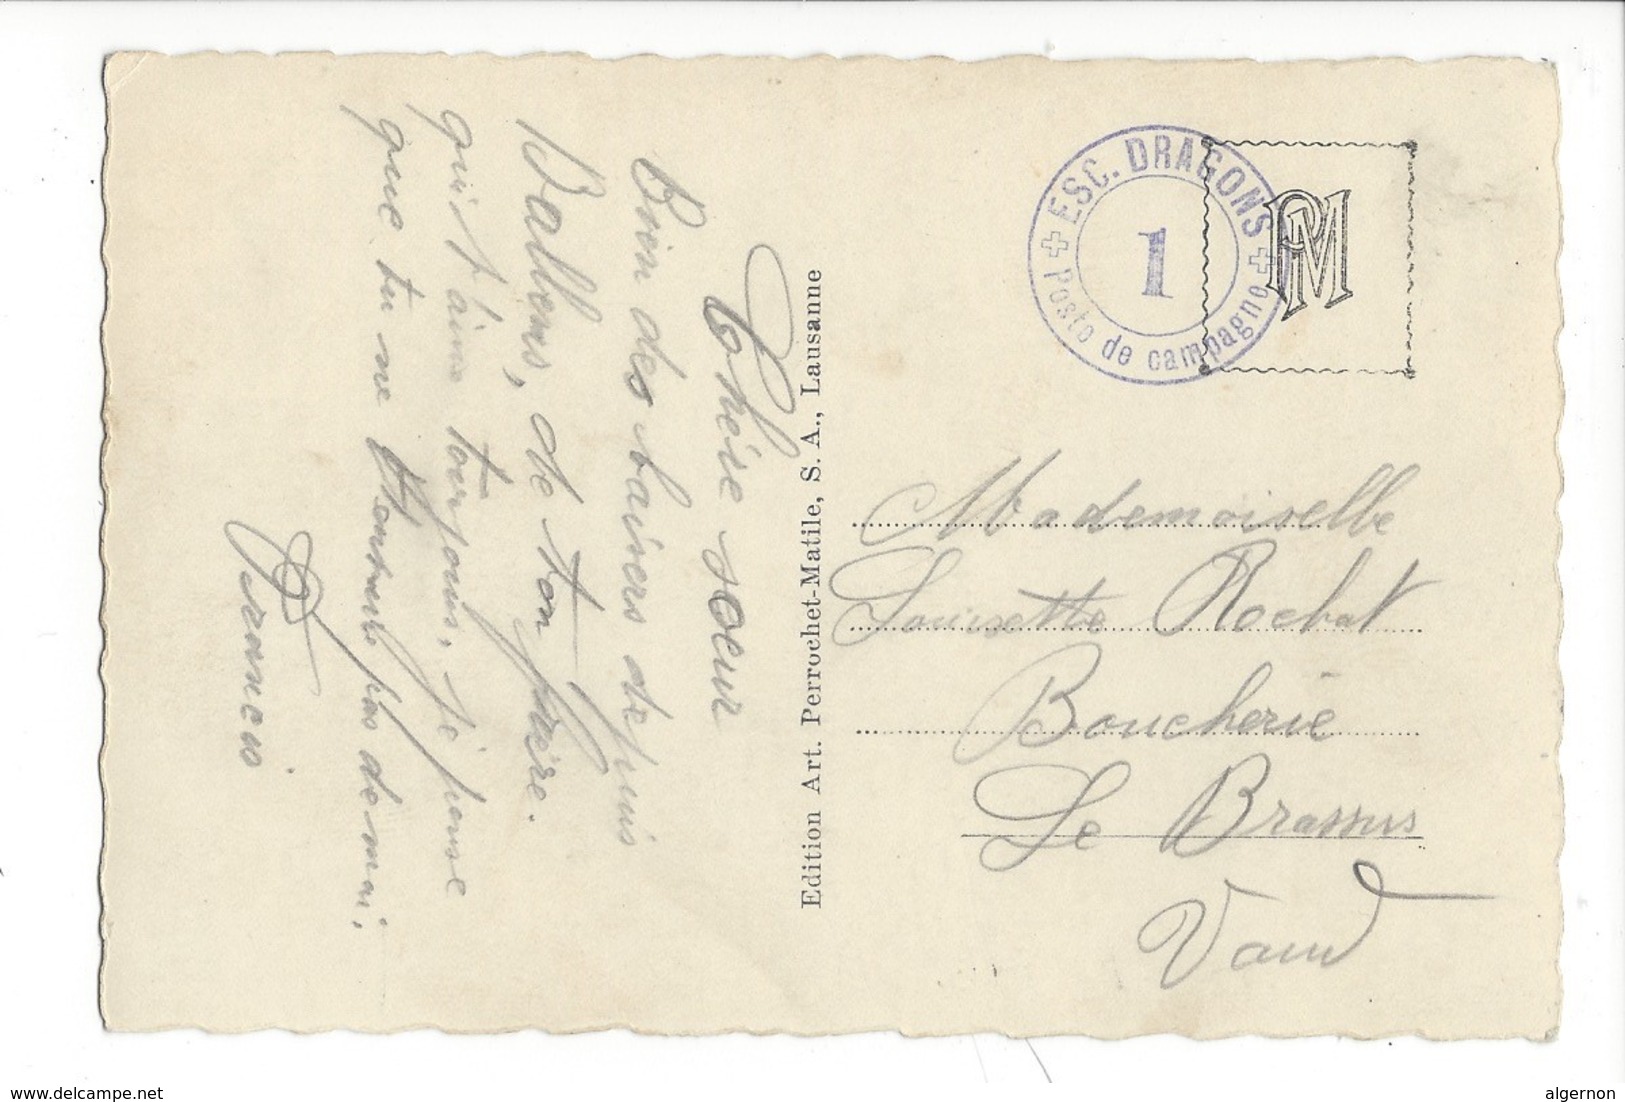 Chère soeur
Bien des baisers depuis
Ballens, de ton frère.
qui t'aime toujours, je pense
que tu ne t'ennuis pas de moi.
Francis
Edition Art. Perrochet-Matile, S. A., Lausanne
+ ESC. DRAGONS +
1
Poste de campagne
PM
Mademoiselle
Louisette Rochat
Boucherie
Le Brassus
Vaud
www.delcampe.net
algernon